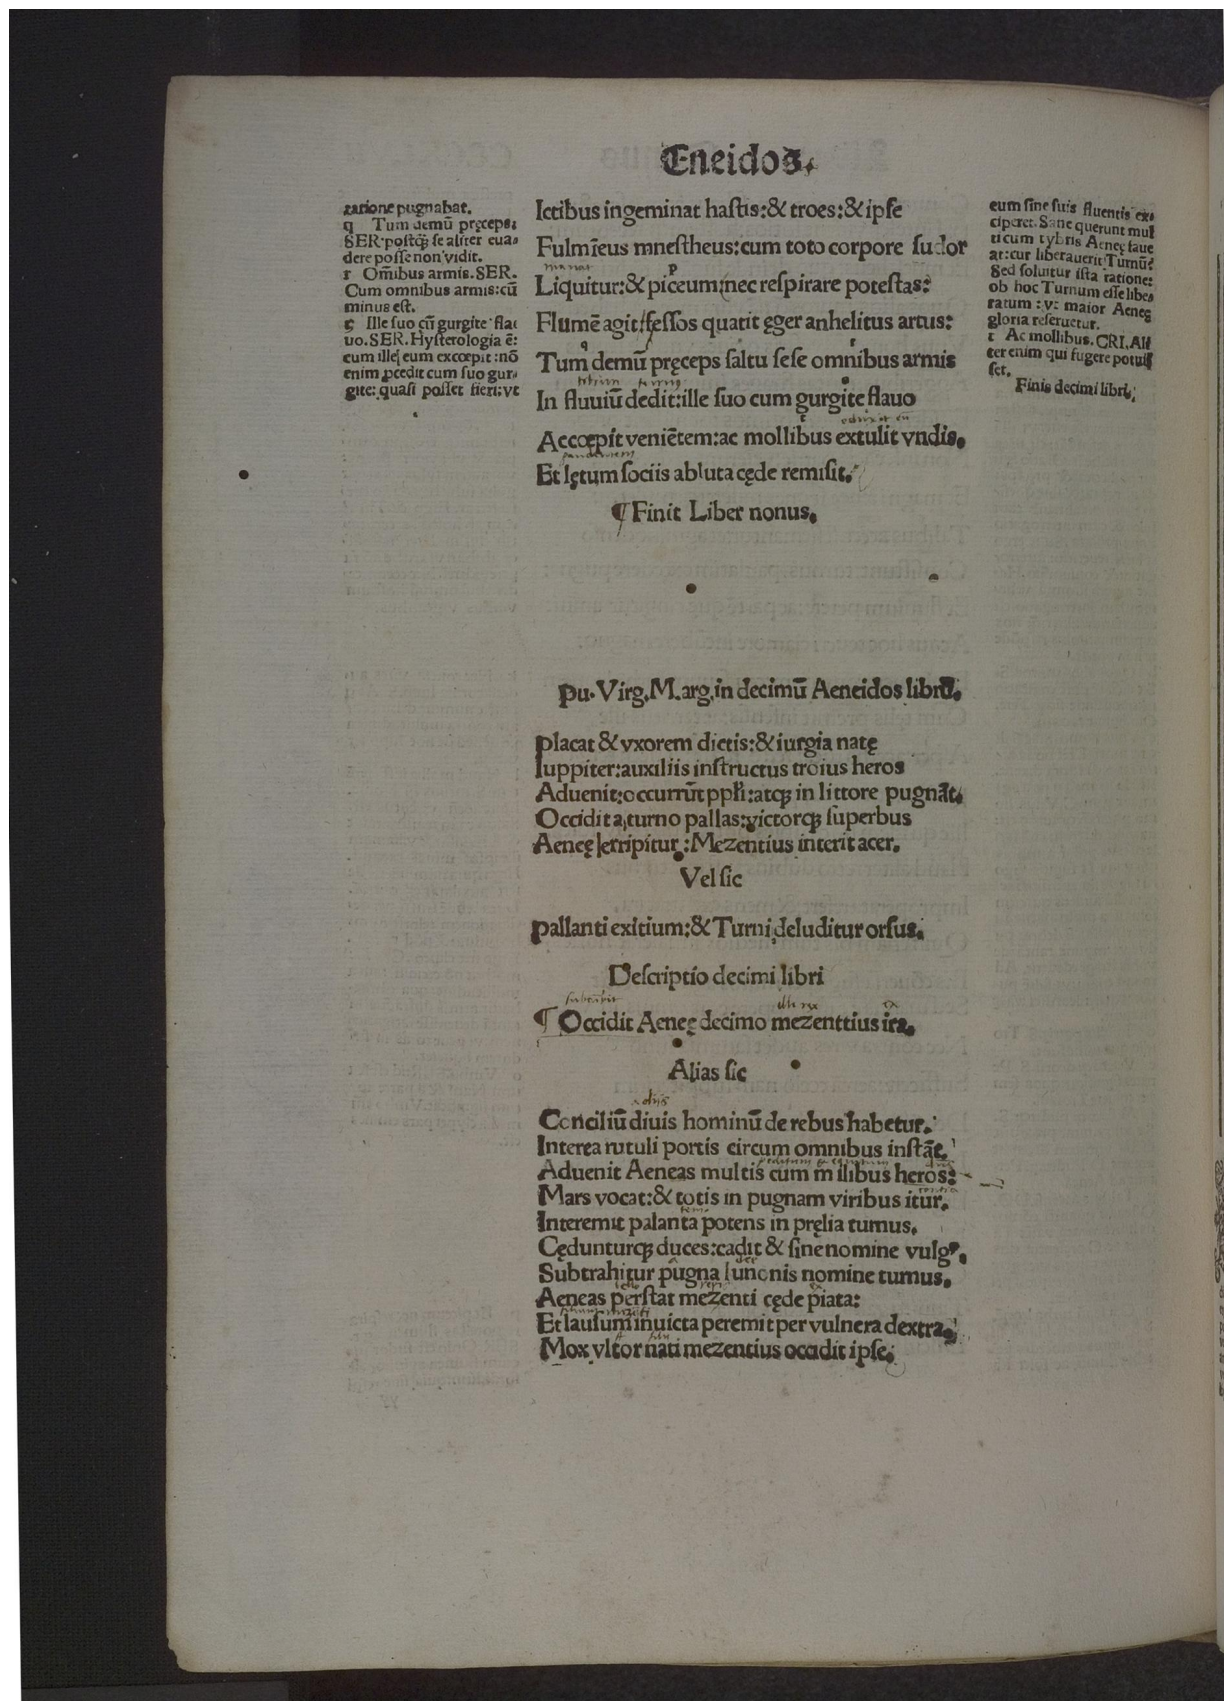 Eneidos.
ratione pugnabat.
q Tum demū pręceps:
SER. postq̃ se aliter eua-
dere posse non vidit.
r Om̃ibus armis. SER.
Cum omnibus armis: cū
minus est.
s Ille suo cū gurgite fla-
uo. SER. Hysterologia ē:
cum ille eum excœpit: nō
enim ꝓcedit cum suo gur-
gite: quasi posset fieri: vt
Ictibus ingeminat hastis: & troes: & ipse
Fulmīeus mnestheus: cum toto corpore sudor
manat p
Liquitur: & piceum (nec respirare potestas:
Flumē agit: fessos quatit ęger anhelitus artus:
q r
Tum demū pręceps saltu sese omnibus armis
In fluuiū dedit: ille suo cum gurgite flauo
t
Accœpit veniētem: ac mollibus extulit vndis.
Et lętum sociis abluta cęde remisit.
¶ Finit Liber nonus.
eum sine suis fluentis ex-
ciperet. Sane querunt mul
ti cum tybris Aeneę faue
at: cur liberauerit Turnū?
Sed soluitur ista ratione:
ob hoc Turnum esse libe-
ratum: vt maior Aeneę
gloria reseruetur.
t Ac mollibus. CRI. Ali
ter enim qui fugere potuis
set.
Finis decimi libri.
Pu. Virg. M. arg. in decimū Aeneidos librū.
Placat & vxorem dictis: & iurgia natę
Iuppiter: auxiliis instructus troius heros
Aduenit: occurrūt ppli: atq̃ in littore pugnāt.
Occidit a turno pallas: victorq̃ superbus
Aeneę erripitur: Mezentius interit acer.
Vel sic
Pallanti exitium: & Turni deluditur orsus.
Descriptio decimi libri
ille rex ex
¶ Occidit Aeneę decimo mezenttius ira.
Alias sic
Conciliū diuis hominū de rebus habetur.
Interea rutuli portis circum omnibus instāt.
Aduenit Aeneas multis cum milibus heros:
Mars vocat: & totis in pugnam viribus itur.
Interemit palanta potens in pręlia turnus.
Cędunturq̃ duces: cadit & sine nomine vulgꝰ.
Subtrahitur pugna Iunonis nomine turnus.
Aeneas perstat mezenti cęde piata:
Et lausum inuicta peremit per vulnera dextra.
Mox vltor nati mezentius occidit ipse.